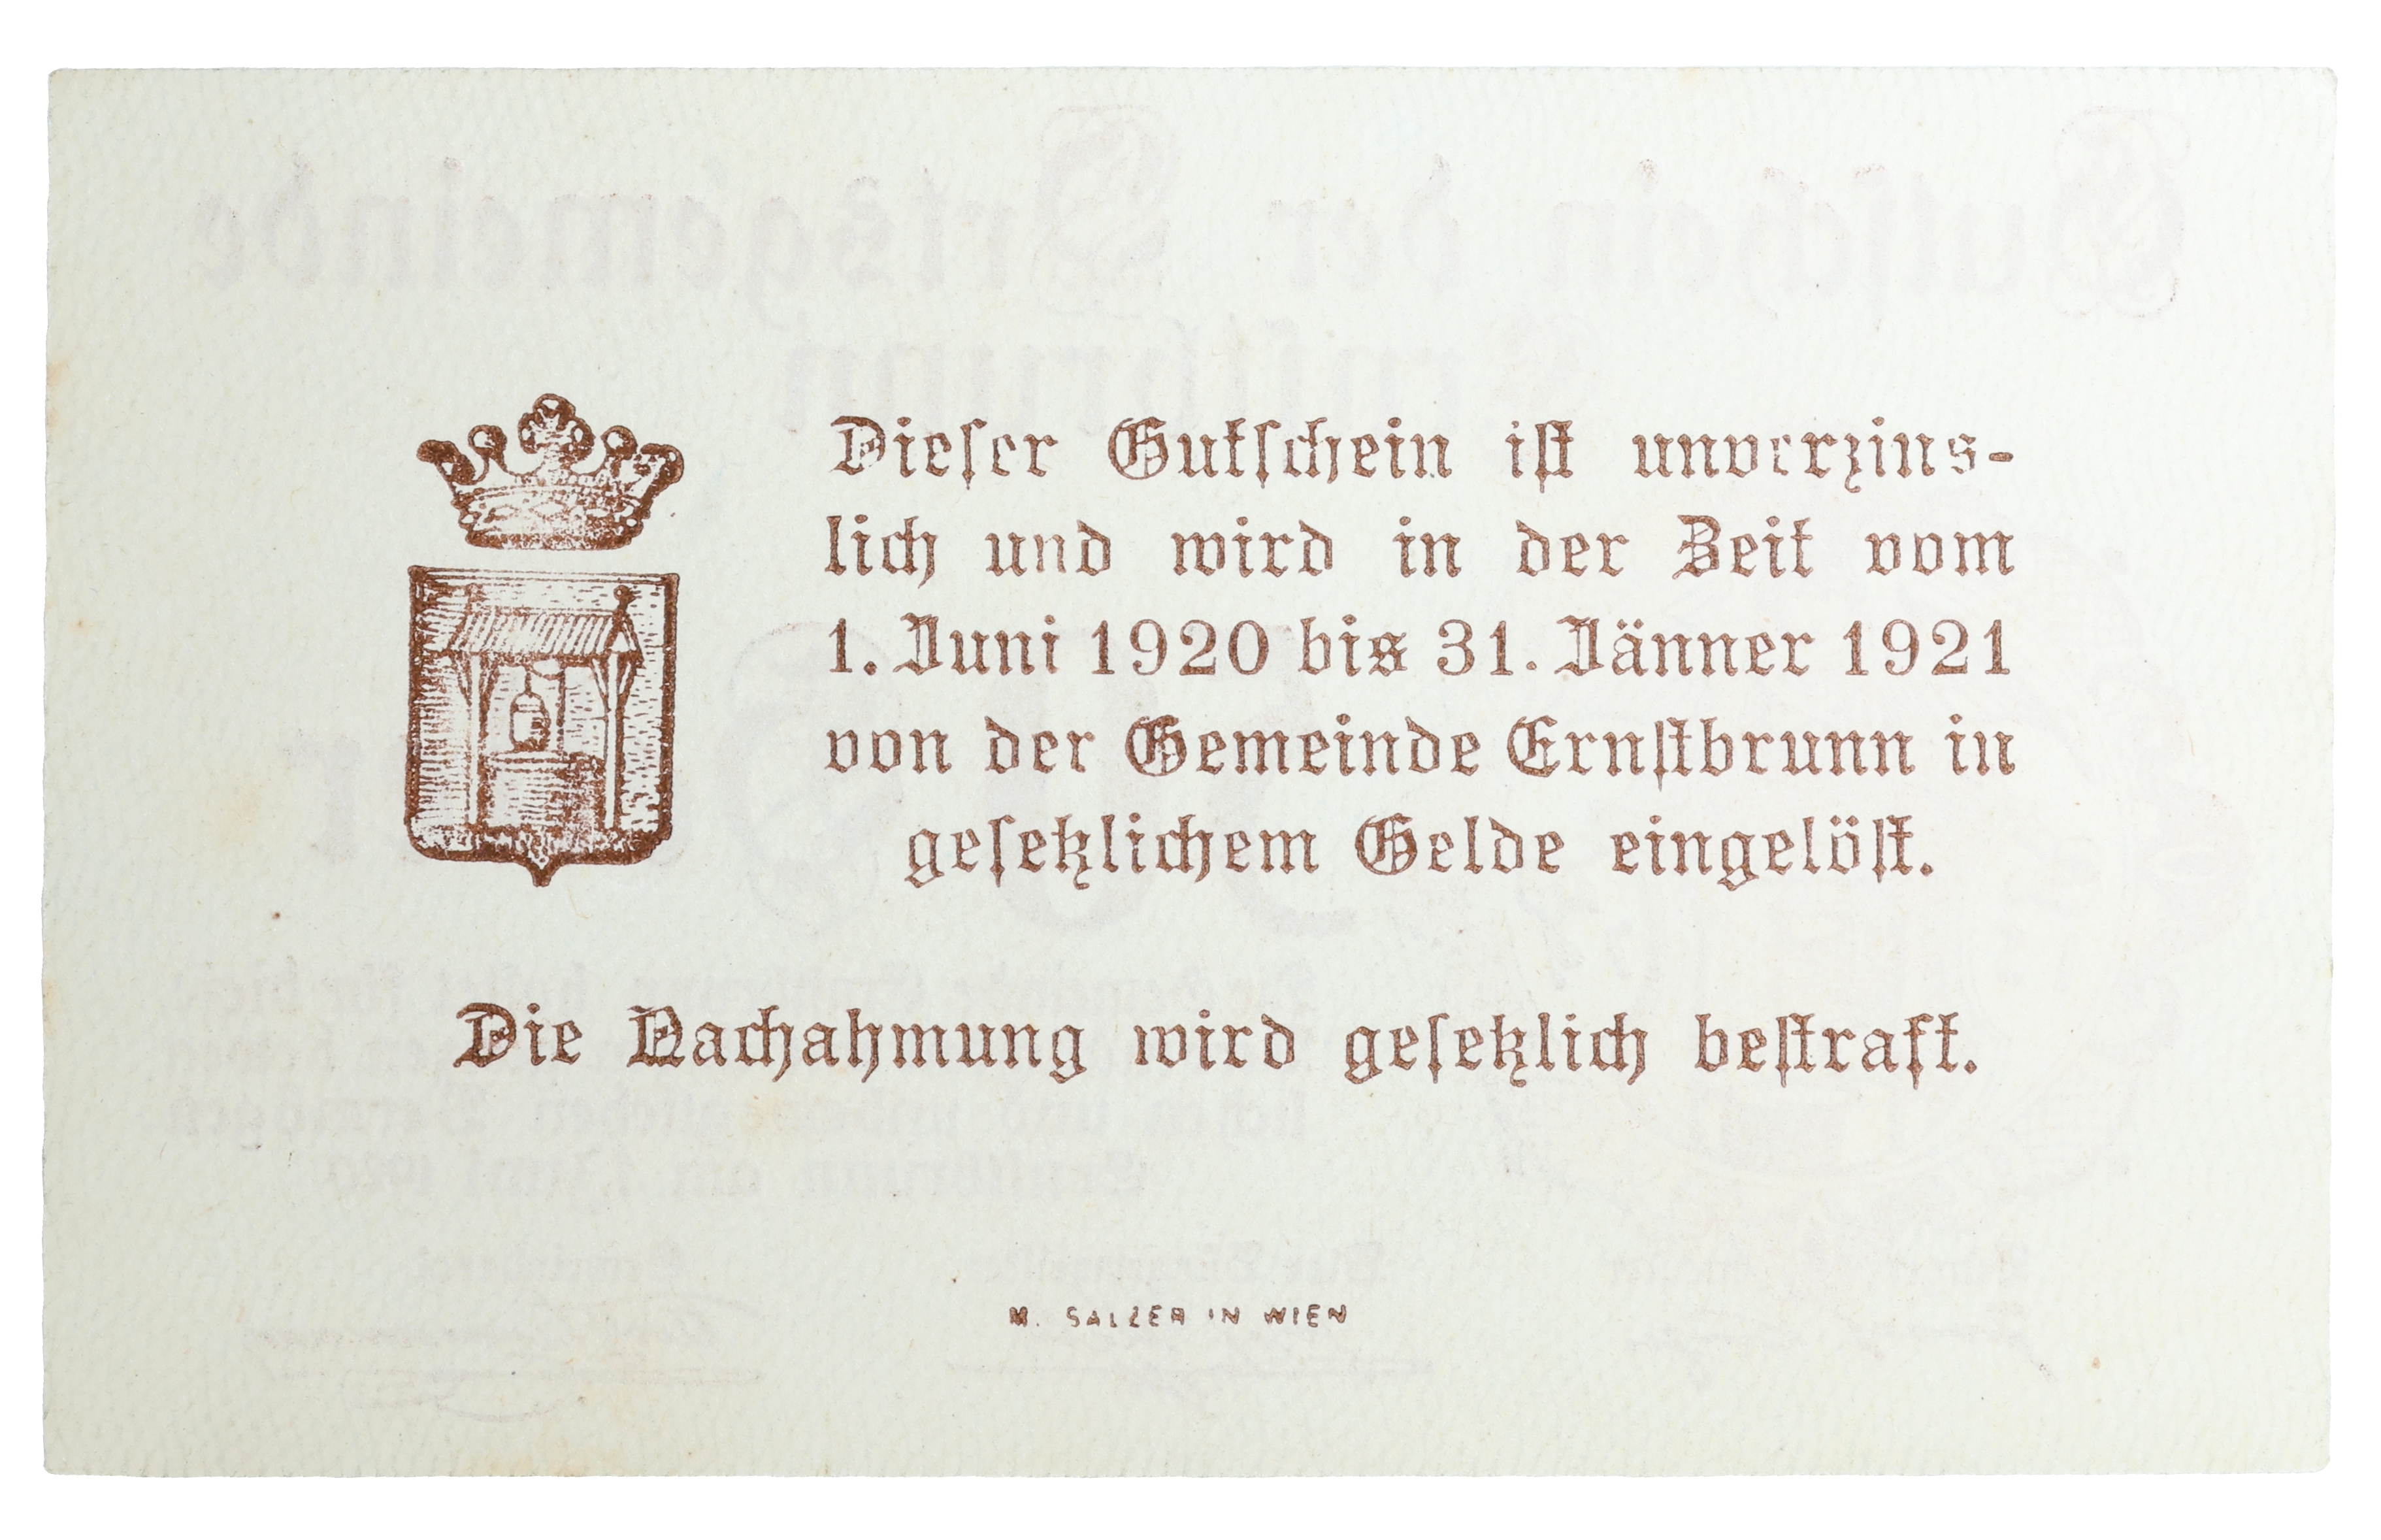 Dieser Gutschein ist unverzins-
lich und wird in der Zeit vom
1. Juni 1920 bis 31. Jänner 1921
von der Gemeinde Ernstbrunn in
gesetzlichem Gelde eingelöst.
Die Nachahmung wird gesetzlich bestraft.
M. SALZER IN WIEN